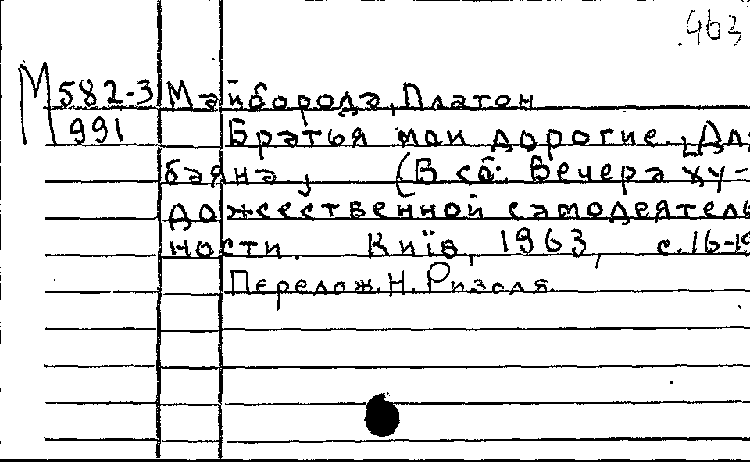 463
М 582-3 Майборода, Платон
991 Братья мои дорогие. [Для
баяна], (В сб: Вечера ху-
дожественной самодеятель
ности. Київ, 1963, с.16-19
Перелож. Н. Ризоля.